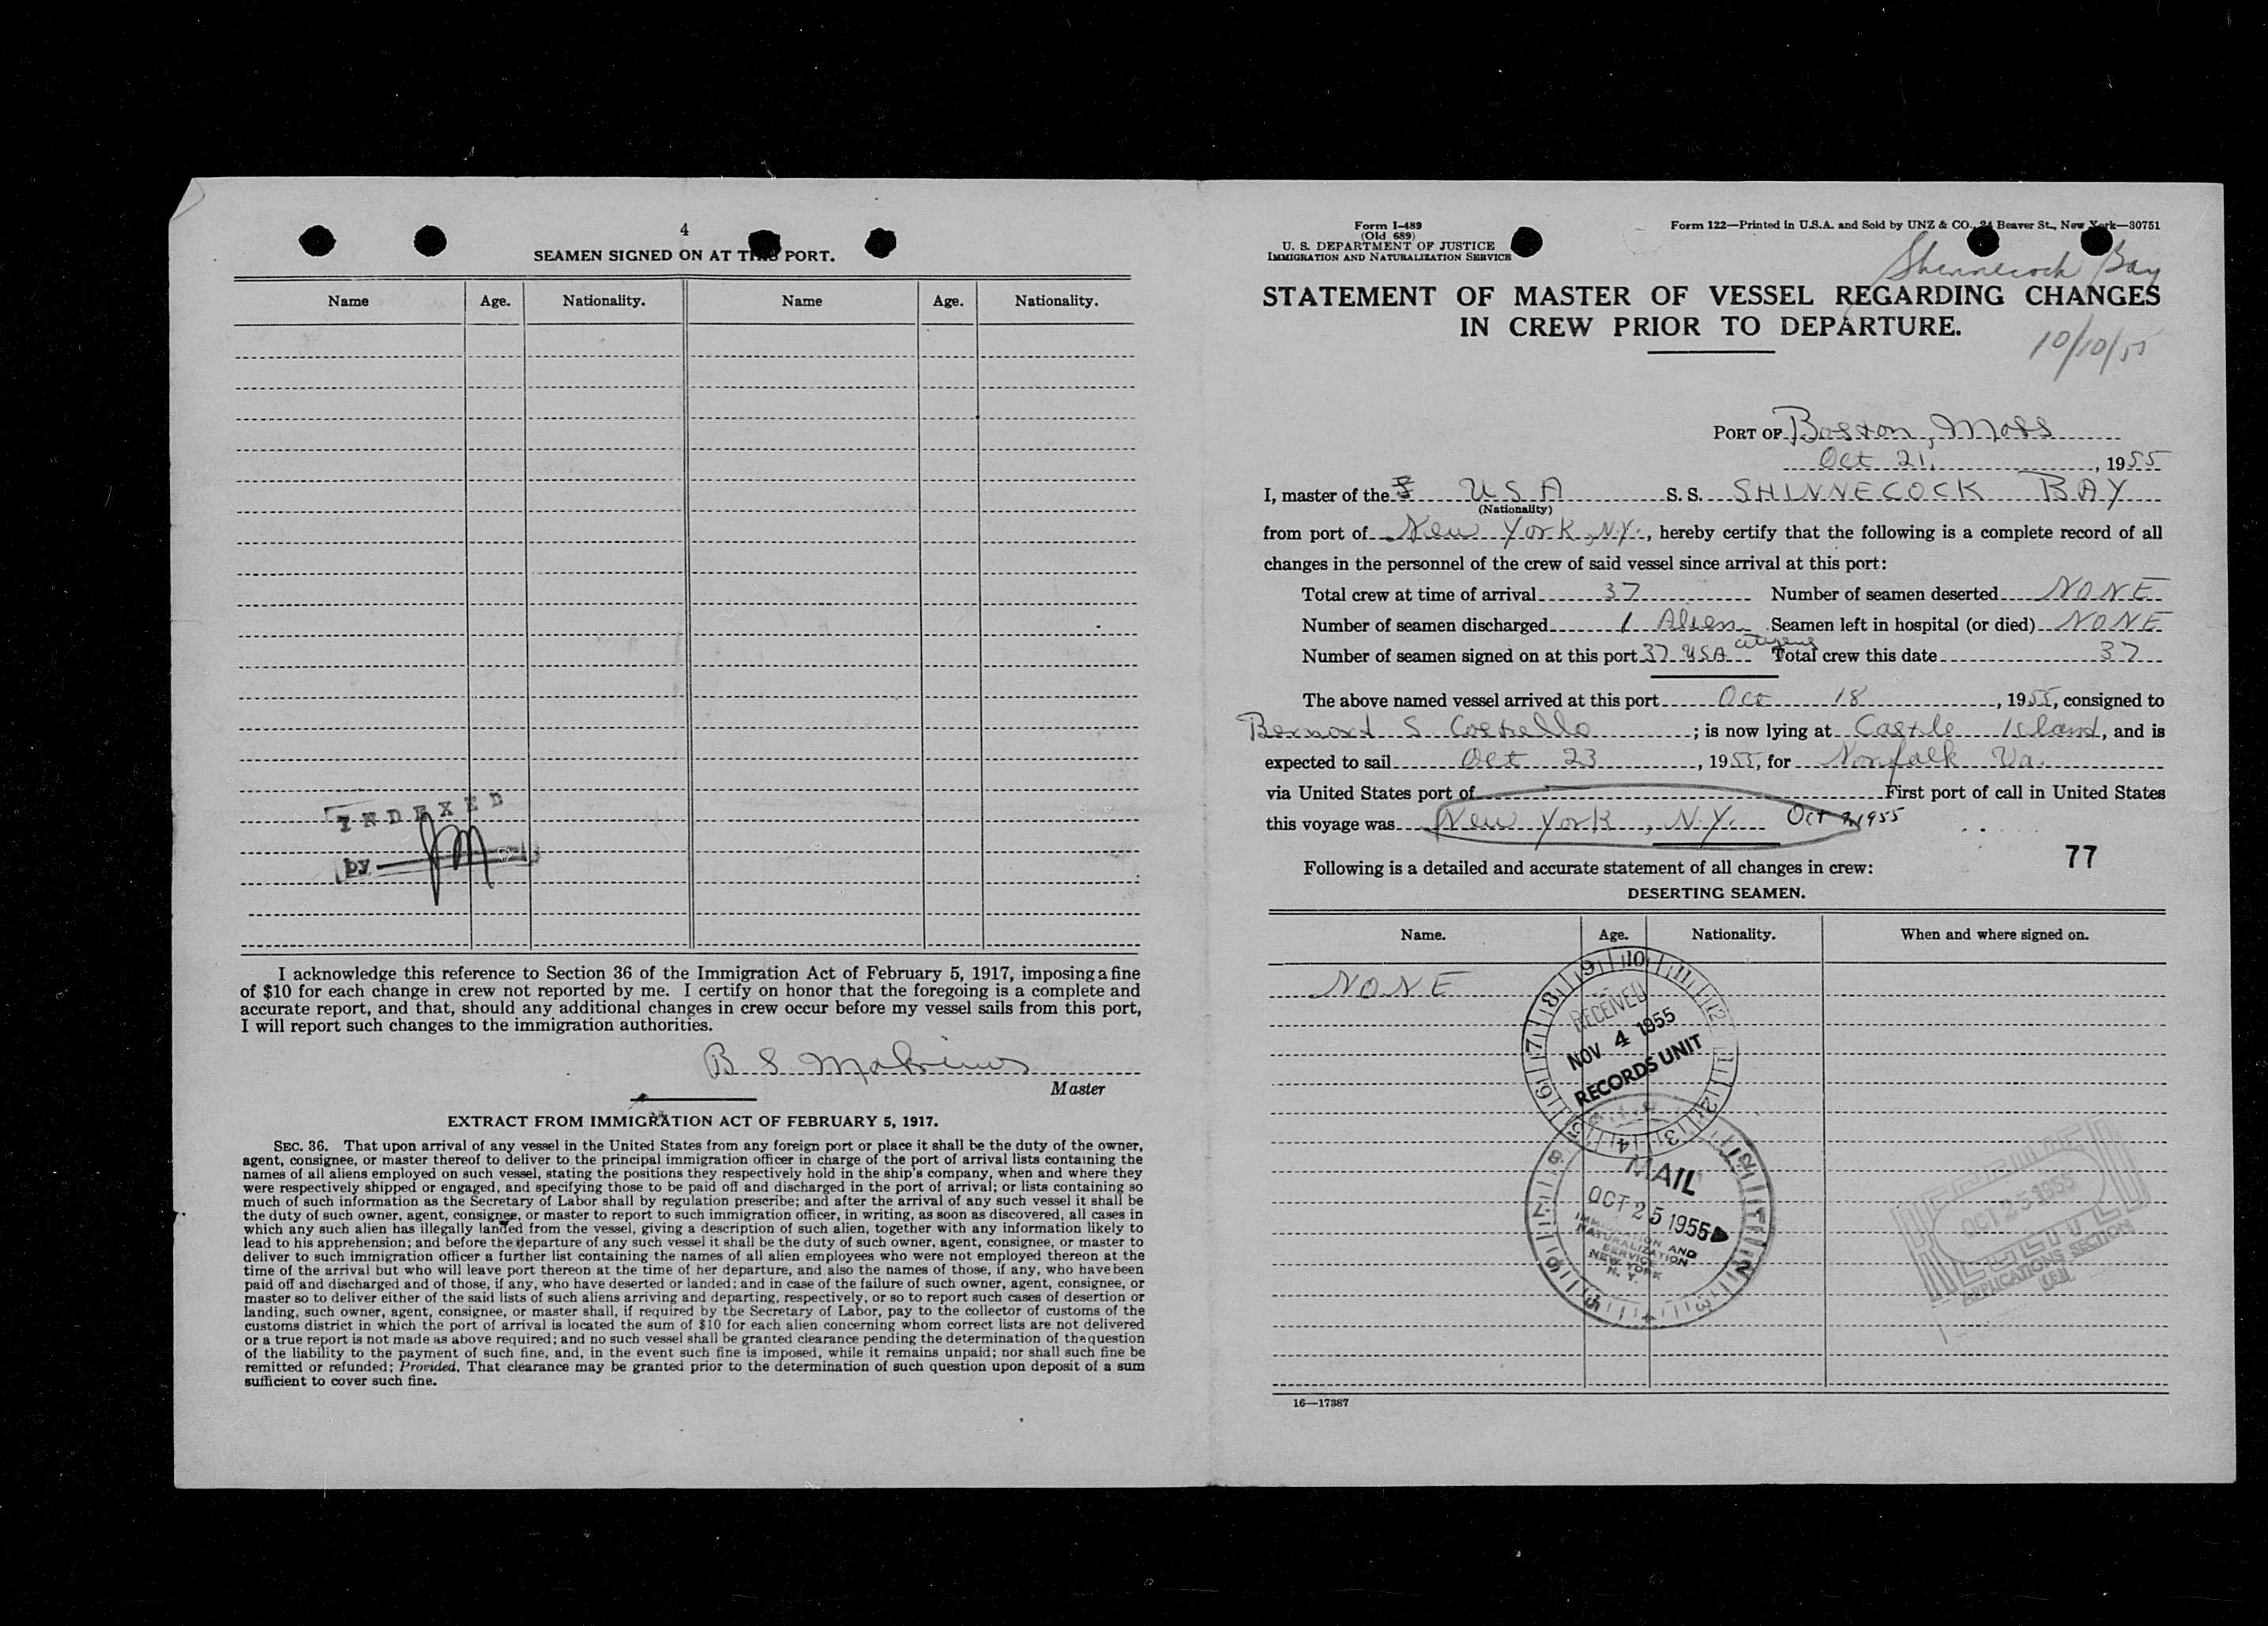 4
SEAMEN SIGNED ON AT THIS PORT.
Name Age. Nationality. Name Age. Nationality.
INDEXED
by
I acknowledge this reference to Section 36 of the Immigration Act of February 5, 1917, imposing a fine
of $10 for each change in crew not reported by me. I certify on honor that the foregoing is a complete and
accurate report, and that, should any additional changes in crew occur before my vessel sails from this port,
I will report such changes to the immigration authorities.
B S
Master
EXTRACT FROM IMMIGRATION ACT OF FEBRUARY 5, 1917.
SEC. 36. That upon arrival of any vessel in the United States from any foreign port or place it shall be the duty of the owner,
agent, consignee, or master thereof to deliver to the principal immigration officer in charge of the port of arrival lists containing the
names of all aliens employed on such vessel, stating the positions they respectively hold in the ship's company, when and where they
were respectively shipped or engaged, and specifying those to be paid off and discharged in the port of arrival; or lists containing so
much of such information as the Secretary of Labor shall by regulation prescribe; and after the arrival of any such vessel it shall be
the duty of such owner, agent, consignee, or master to report to such immigration officer, in writing, as soon as discovered, all cases in
which any such alien has illegally landed from the vessel, giving a description of such alien, together with any information likely to
lead to his apprehension; and before the departure of any such vessel it shall be the duty of such owner, agent, consignee, or master to
deliver to such immigration officer a further list containing the names of all alien employees who were not employed thereon at the
time of the arrival but who will leave port thereon at the time of her departure, and also the names of those, if any, who have been
paid off and discharged and of those, if any, who have deserted or landed; and in case of the failure of such owner, agent, consignee, or
master so to deliver either of the said lists of such aliens arriving and departing, respectively, or so to report such cases of desertion or
landing, such owner, agent, consignee, or master shall, if required by the Secretary of Labor, pay to the collector of customs of the
customs district in which the port of arrival is located the sum of $10 for each alien concerning whom correct lists are not delivered
or a true report is not made as above required; and no such vessel shall be granted clearance pending the determination of the question
of the liability to the payment of such fine, and, in the event such fine is imposed, while it remains unpaid; nor shall such fine be
remitted or refunded; Provided, That clearance may be granted prior to the determination of such question upon deposit of a sum
sufficient to cover such fine.
Form I-489
(Old 689)
U. S. DEPARTMENT OF JUSTICE
IMMIGRATION AND NATURALIZATION SERVICE
Form 122—Printed in U.S.A. and Sold by UNZ & CO., 24 Beaver St., New York—30751
Shinnecock Bay
STATEMENT OF MASTER OF VESSEL REGARDING CHANGES
IN CREW PRIOR TO DEPARTURE.
10/10/55
PORT OF Boston, Mass
Oct 21, 1955
I, master of the USA S. S. SHINNECOCK BAY
(Nationality)
from port of New York, N.Y., hereby certify that the following is a complete record of all
changes in the personnel of the crew of said vessel since arrival at this port:
Total crew at time of arrival 37 Number of seamen deserted NONE
Number of seamen discharged 1 Alien Seamen left in hospital (or died) NONE
Number of seamen signed on at this port 37 USA citizens Total crew this date 37
The above named vessel arrived at this port Oct 18, 1955, consigned to
Bernard S Costello; is now lying at Castle Island, and is
expected to sail Oct 23, 1955, for Norfolk Va.
via United States port of First port of call in United States
this voyage was New York, N.Y. Oct 1955
77
Following is a detailed and accurate statement of all changes in crew:
DESERTING SEAMEN.
Name. Age. Nationality. When and where signed on.
NONE
RECEIVED
NOV 4 1955
RECORDS UNIT
MAIL
OCT 25 1955
IMMIGRATION AND
NATURALIZATION
SERVICE
NEW YORK
N. Y.
OCT 25 1955
APPLICATIONS SECTION
16—17387